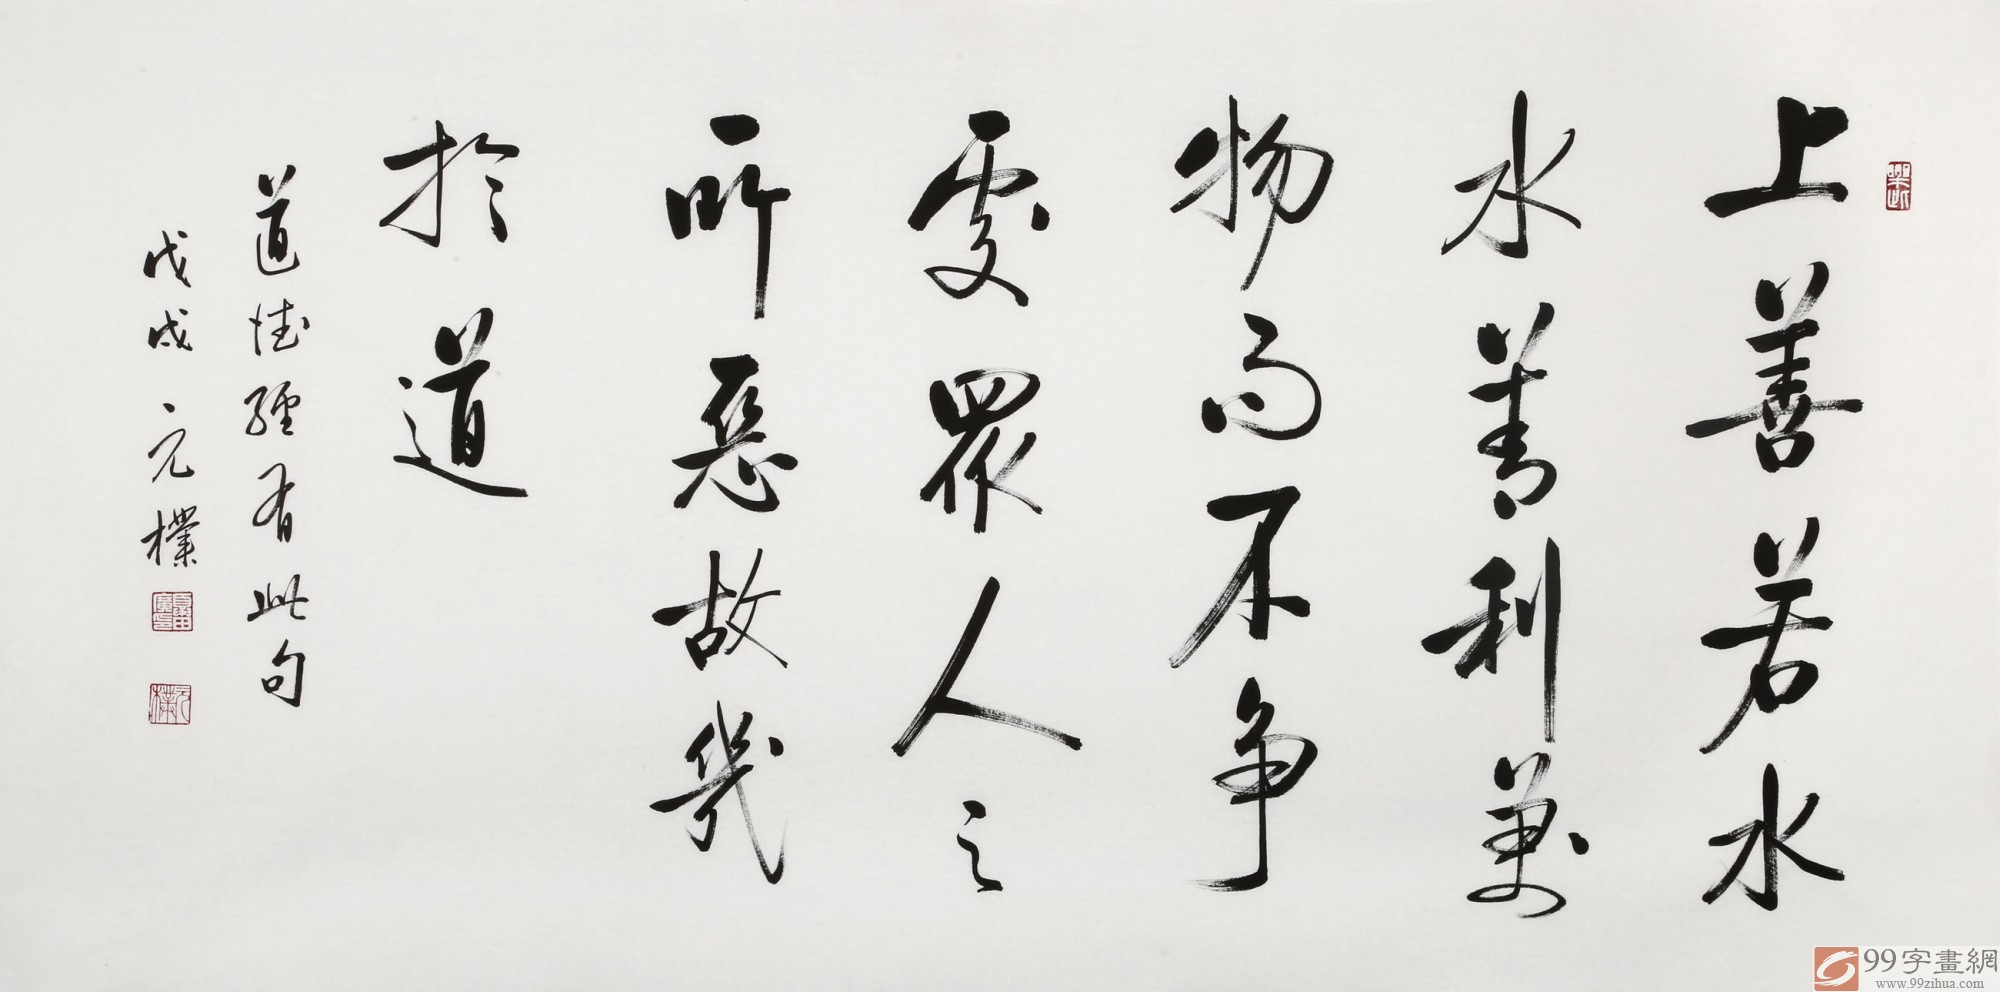 上善若水
水善利萬
物而不争
處眾人之
所惡故幾
於道
道德經有此句
戊戌元樸
元樸
99字畫網
www.99zihua.com